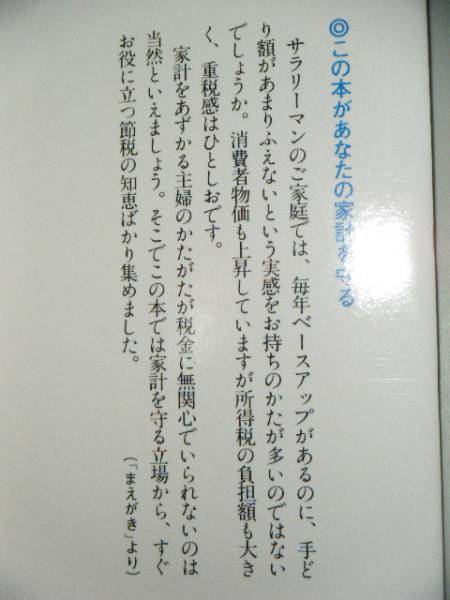 ◎この本があなたの家計を守る
サラリーマンのご家庭では、毎年ベースアップがあるのに、手ど
り額があまりふえないという実感をお持ちのかたが多いのではない
でしょうか。消費者物価も上昇していますが所得税の負担額も大き
く、重税感はひとしおです。
家計をあずかる主婦のかたがたが税金に無関心でいられないのは
当然といえましょう。そこでこの本では家計を守る立場から、すぐ
お役に立つ節税の知恵ばかり集めました。
(「まえがき」より)